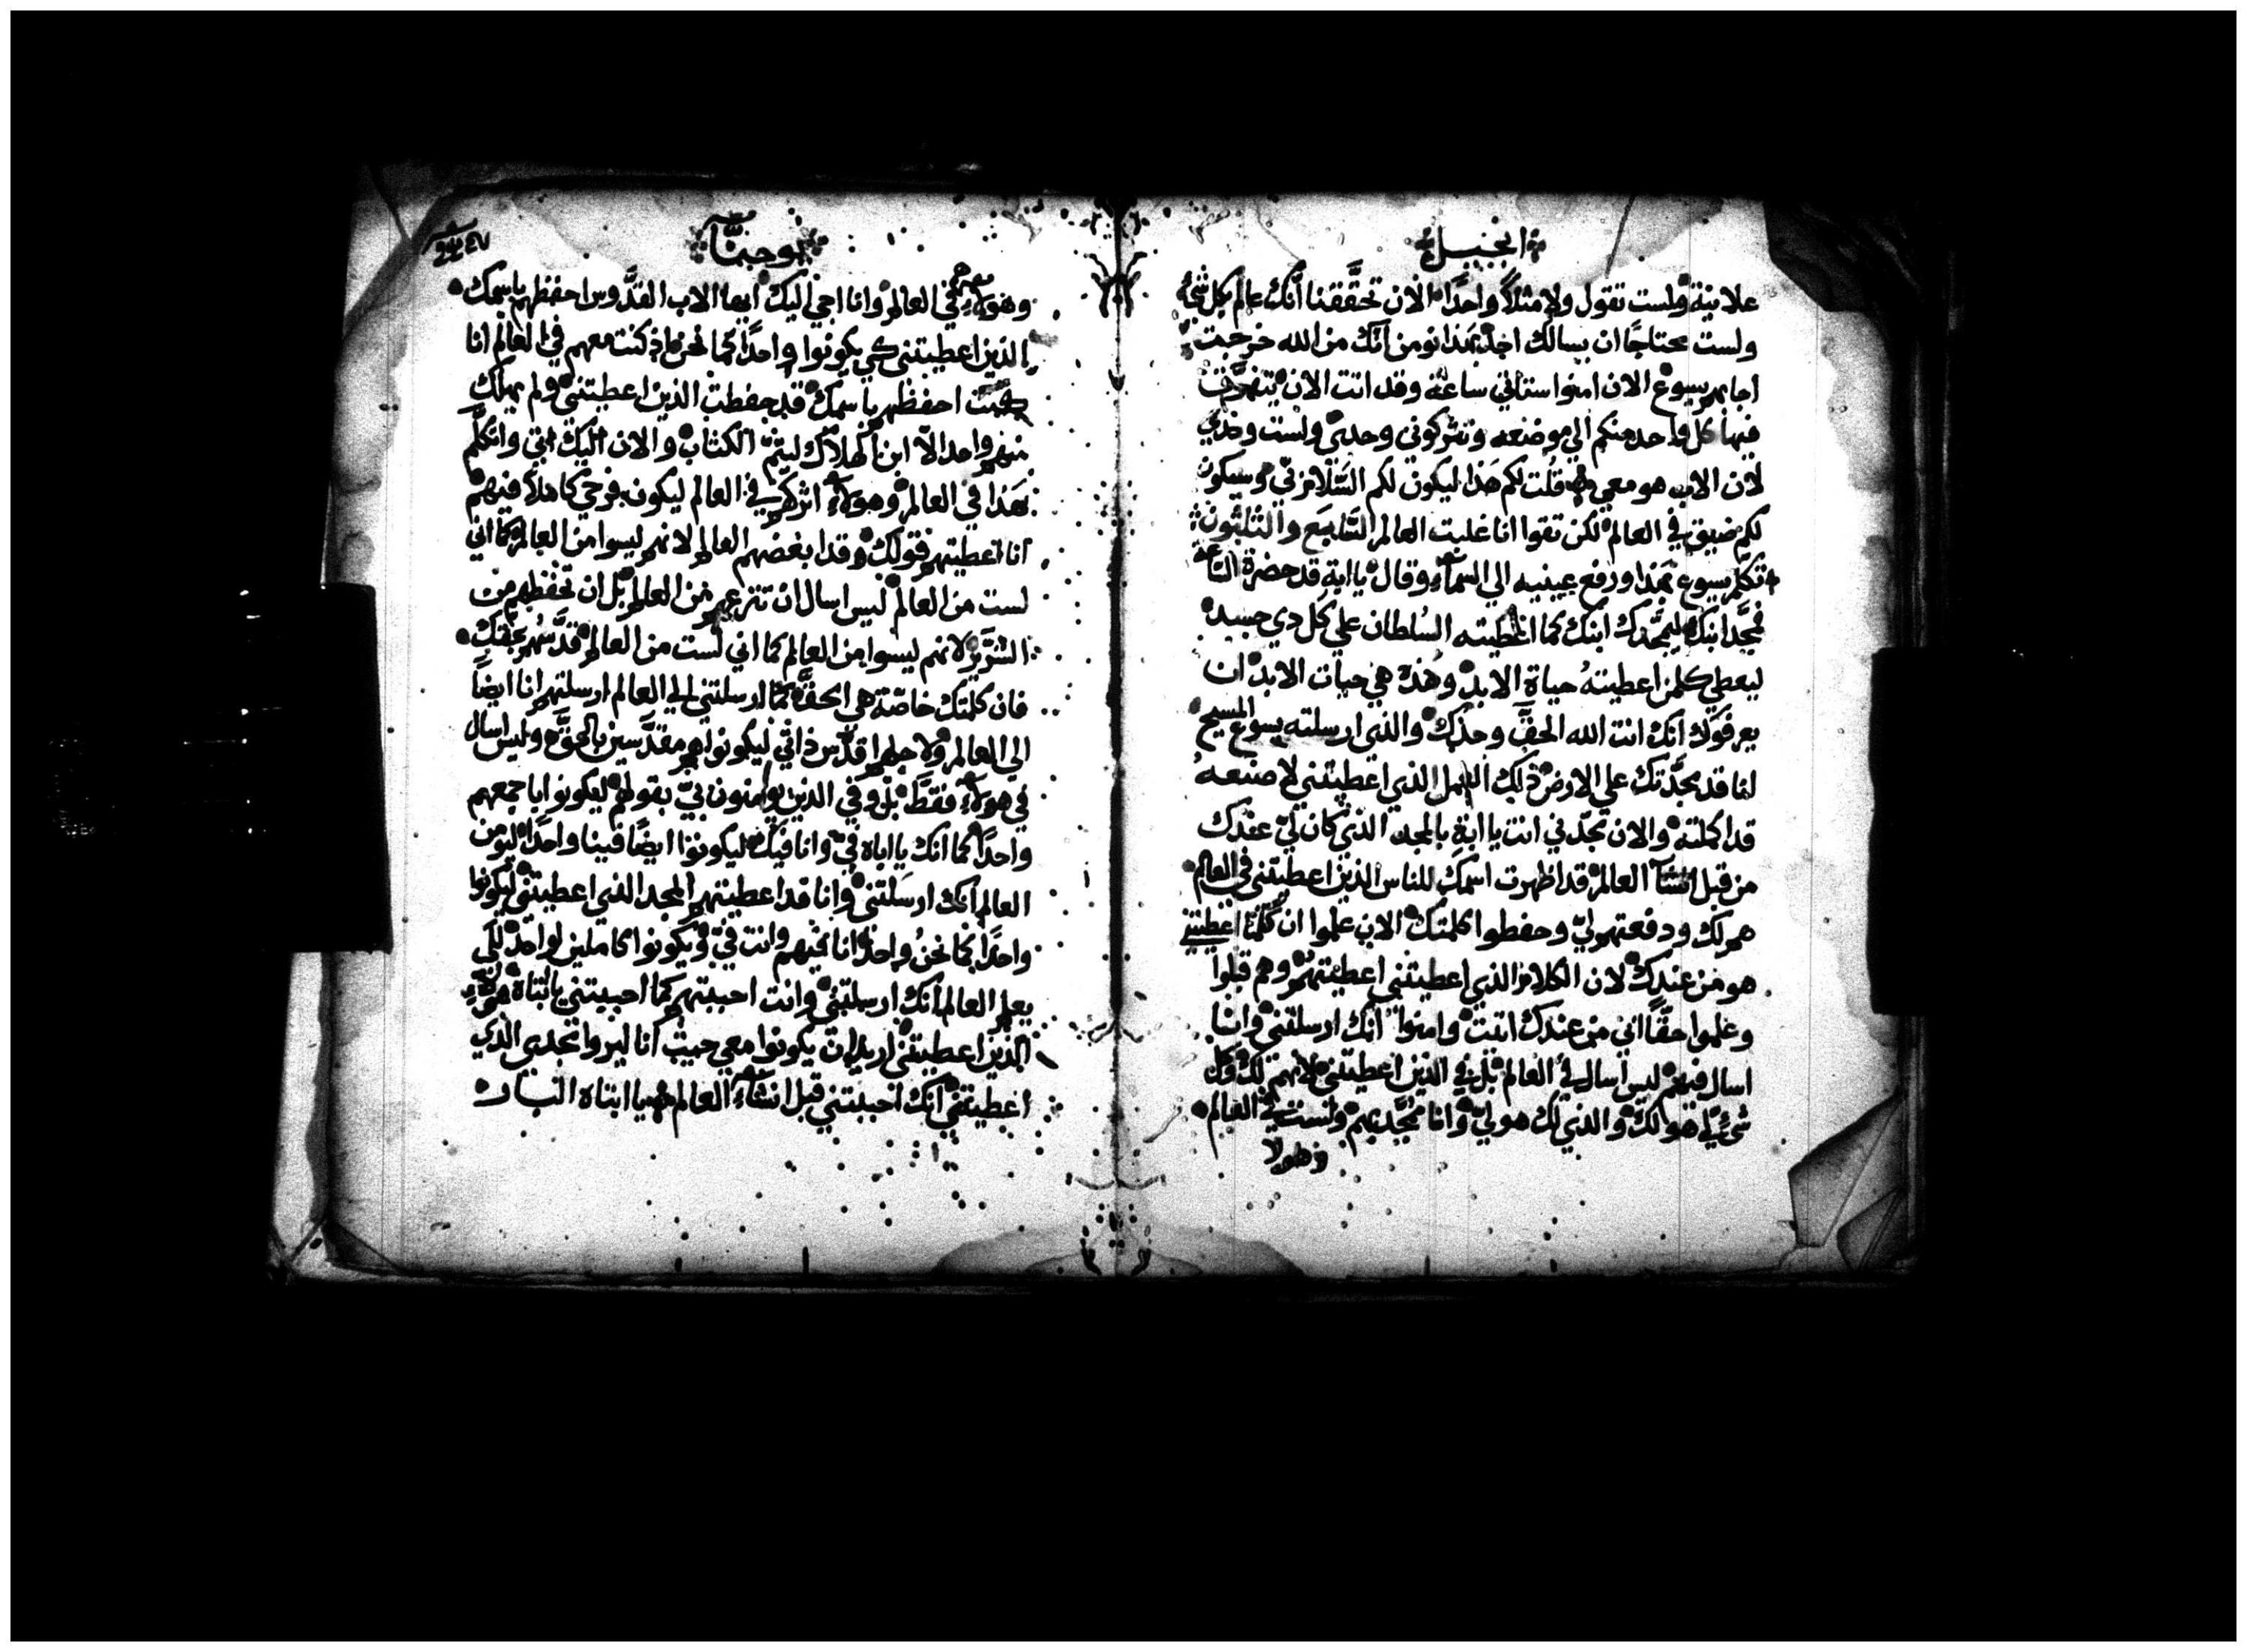 انجيل
علانية ولست تقول ولا مثلاً واحدًا الان تحقَّقنا أنَّك عالم بكل شي
ولست محتاجًا ان يسالك احد بهذا نومن انّك من الله خرجت
اجابهم يسوع الان امنوا ستاتي ساعة وقد اتت الان تتفرّق
فيها كل واحد منكم الي موضعه وتتركوني وحدي ولست وحدي
لان الاب هو معي قلت لكم هذا ليكون لكم السَّلام فيّ وسيكون
لكم ضيق في العالم لكن تقوا انا غلبت العالم السَّابع والثلثون
تكلّم يسوع بهذا ورفع عينيه الي السمآء وقال يا ابة قد حضرة السَّاعة
فمجّد ابنك ليمجّدك ابنك كما اعطيته السُلطان علي كل دي جسد
ليعطي كلمن اعطيتهُ حياة الابد وهذه هي حيات الابد ان
يعرفوك انك انت الله الحقّ وحدك والذي ارسلته يسوع المسيح
انا قد مجَّدتك علي الارض ذلك العمل الذي اعطيتني لاصنعهُ
قد اكملته والان مجّدني انت يا ابة بالمجد الذي كان لي عندك
من قبل انشآ العالم قد اظهرت اسمك للناس الذين اعطيتني في العالم
هم لك ودفعتهم ليّ وحفطوا كلمتك الان علموا ان كلّما اعطيتني
هو من عندك لان الكلام الذي اعطيتني اعطيتهُم وهم قبلوا
وعلموا حقًّا اني من عندك اتيت وامنوا انك ارسلتني وانا
اسال فيهم ليس اسال في العالم بل في الذين اعطيتني لانهم لك وكل
شيء لي هو لك والذي لك هو ليّ وانا ممُجَّد بهم ولست في العالم
وهولا
يوحنّا
وهولآءِ هم في العالم وانا اجي اليك ايها الاب القدَّوس احفظهم باسمك
الذين اعطيتني كي يكونوا واحدًا كما نحن اذ كنت معهم في العالم انا
كنت احفظهم باسمك قد حفطت الذين اعطيتني ولم يهلك
منهم واحد الّا ابن الهلاك ليتمّ الكتاب والان اليك اتي واتكلّم
بهذا في العالم وهولآءِ اتركهم في العالم ليكون فرحي كاملاً فيهم
انا اعطيتهم قولك وقد ابغضهم العالم لانهم ليسوا من العالم كما اني
لست من العالم ليس اسال ان تنزعهم من العالم بل ان تحفظهم من
الشرّير لانهم ليسوا من العالم كما اني لست من العالم قدَّسهُم بحقك
فان كلمتك خاصّة هي الحقّ كما ارسلتني الي العالم ارسلتهم انا ايضاً
الي العالم ولاجلهم اقدّس ذاتي ليكونوا هم مقدَّسين بالحقّ وليس اسال
في هولآءِ فقطّ بل وفي الذين يومنون بيّ بقولهم ليكونوا باجمعهم
واحدًا كما انك يا اباه فيّ وانا فيك ليكونوا ايضًا فينا واحدًا ليومن
العالم انك ارسَلتني وانا قد اعطيتهم المجد الذي اعطيتني ليكونوا
واحدًا كما نحنُ واحد انا فيهم وانت فيّ ويكونوا كاملين لواحد لكي
يعلم العالم انك ارسلتني وانت احببتهم كما احببتني يا ابتاه هولآءِ
الذين اعطيتني اريد ان يكونوا معي حيث انا ليروا مجدي الذي
اعطيتني انك احببتني قبل انشآءِ العالم يا ابتاه البار